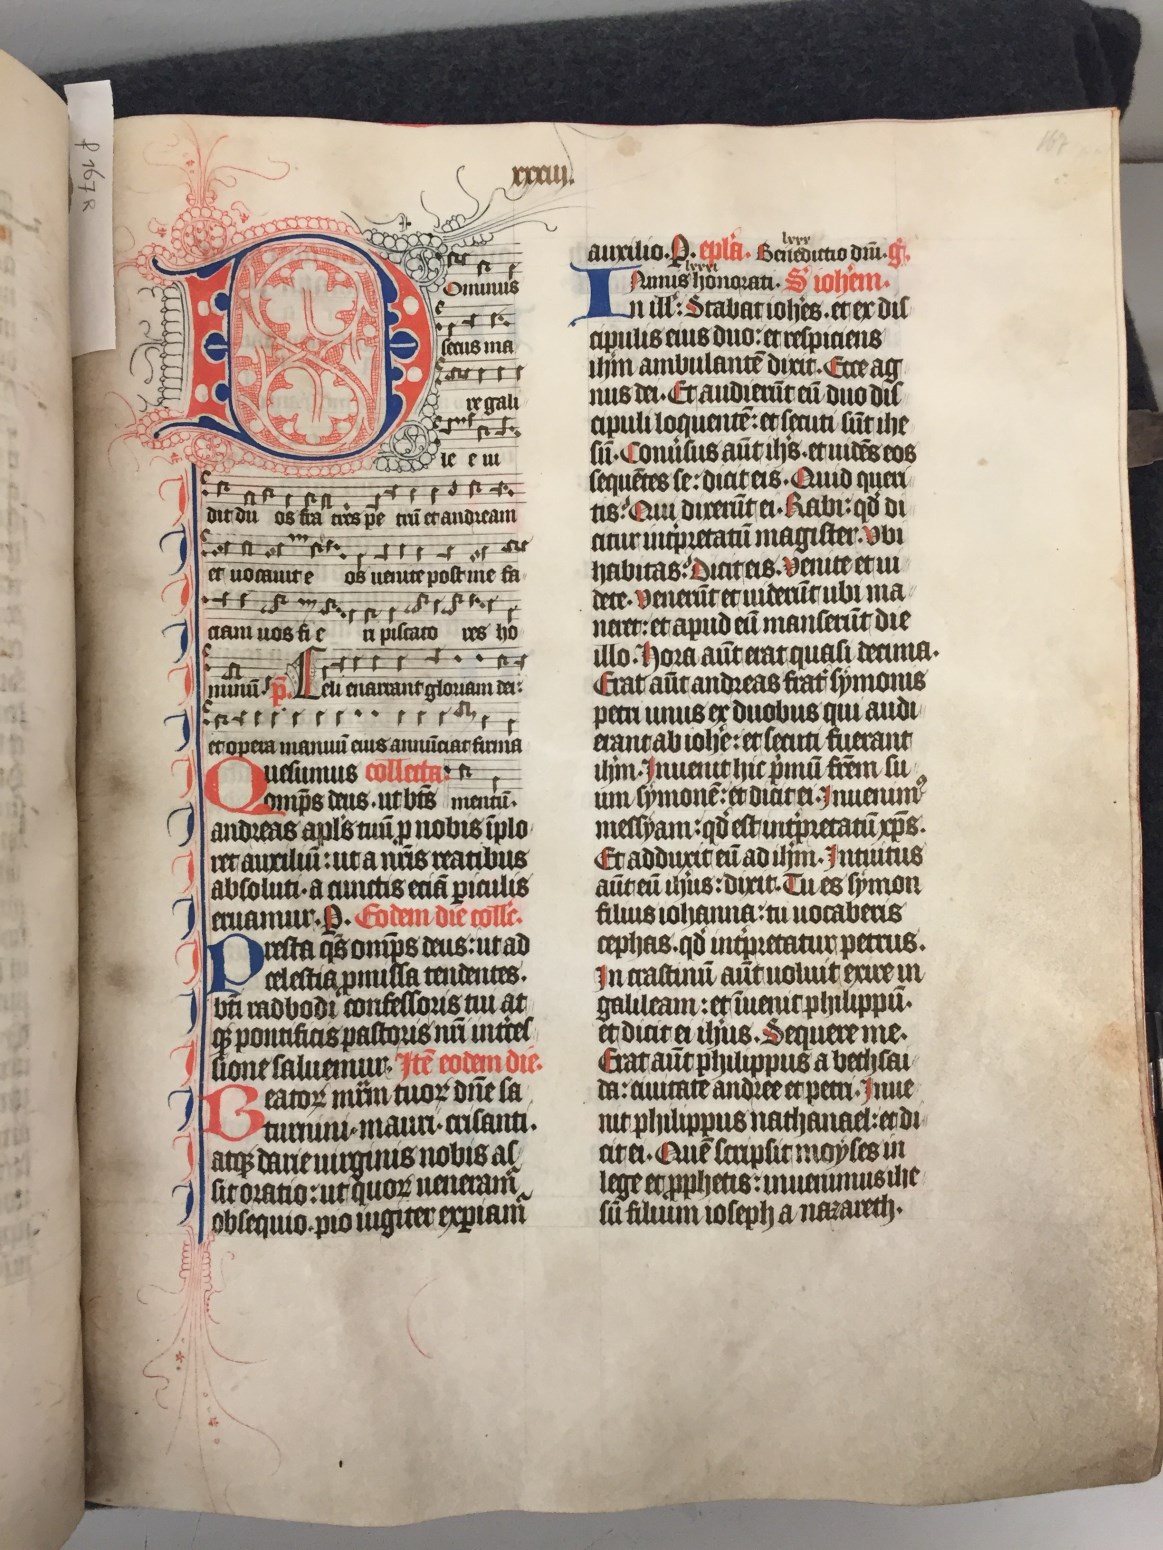 f 167 R
167
xxxiii.
Dominus
secus ma
re gali
le e ui
dit du os fra tres pe trū et andream
et uocauit e os uenite post me fa
ciam uos fi e ri piscato res ho
minū. p̄. Celi enarrant gloriam dei:
et opera manuū eius annūciat firma
Quesumus collecta.
omp̄s deus. ut bt̄s mentū.
andreas apl̄s tuus p nobis īplo
ret auxiliū: ut a nr̄is reatibus
absoluti. a cunctis eciā piculis
eruamur. P. Eodem die coll̄c.
Presta qs̄ omp̄s deus: ut ad
celestia pmissa tendentes.
bt̄i radbodi confessoris tui at
qꝫ pontificis pastoris nr̄i int̄ces
sione saluemur. Itē eodem die.
Beatoꝝ mr̄m tuoꝝ dn̄e sa
turnini. mauri. crisanti.
atqꝫ darie uirginis nobis as
sit oratio: ut quoꝝ ueneram̄
obsequio. pio iugiter expiam̄
auxilio. P. epl̄a. Benedictio dn̄i. gͬ.
lxxx
Nimis honorati. S iohēm.
lxxxi
In ill̄: Stabat ioh̄es. et ex dis
cipulis eius duo: et respiciens
ih̄m ambulantē dixit. Ecce ag
nus dei. Et audierūt eū duo dis
cipuli loquentē: et secuti sūt ihe
sū. Conūsus aūt ih̄s. et uidēs eos
sequētes se: dicit eis. Quid queri
tis? Qui dixerūt ei. Rabi: qd̄ di
citur int̄pretatū magister. Vbi
habitas? Dicit eis. Venite et ui
dete. Venerūt et uiderūt ubi ma
neret: et apud eū manserūt die
illo. Hora aūt erat quasi decima.
Erat aūt andreas frat̄ symonis
petri unus ex duobus qui audi
erant ab ioh̄e: et secuti fuerant
ih̄m. Inuenit hic p̄mū fr̄em su
um symonē: et dicit ei. Inuenimꝰ
messyam: qd̄ est int̄pretatū xp̄s.
Et adduxit eū ad ih̄m. Intuitus
aūt eū ih̄us: dixit. Tu es symon
filius iohanna: tu uocaberis
cephas. qd̄ int̄pretatur petrus.
In crastinū aūt uoluit exire in
galileam: et īuenit philippū.
et dicit ei ih̄us. Sequere me.
Erat aūt philippus a bethsai
da: ciuitate andree et petri. Inue
nit philippus nathanael: et di
cit ei. Quē scripsit moyses in
lege et p̄phetis: inuenimus ihe
sū filium ioseph a nazareth.